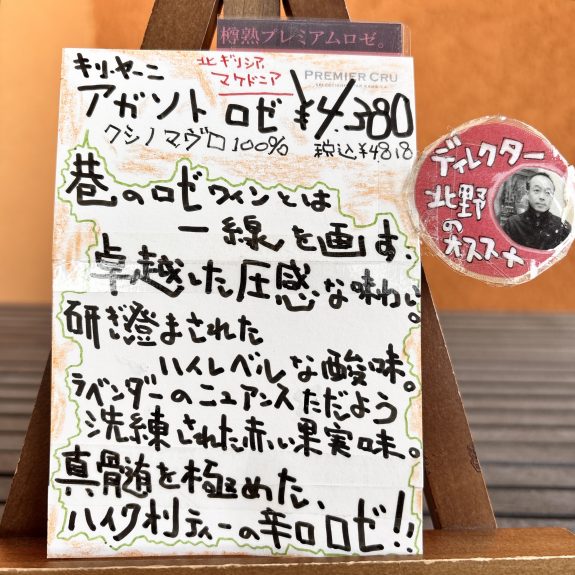 樽熟プレミアムロゼ。
北ギリシア,
マケドニア
PREMIER CRU
キリ・ヤーニ
アガソト ロゼ ¥4,380
クシノマヴロ100% 税込¥4818
巷のロゼワインとは
一線を画す、
卓越した圧感な味わい。
研ぎ澄まされた
ハイレベルな酸味。
ラベンダーのニュアンスただよう
洗練された赤い果実味。
真髄を極めた、
ハイクオリティーの辛口ロゼ!!
ディレクター
北野
の
オススメ!